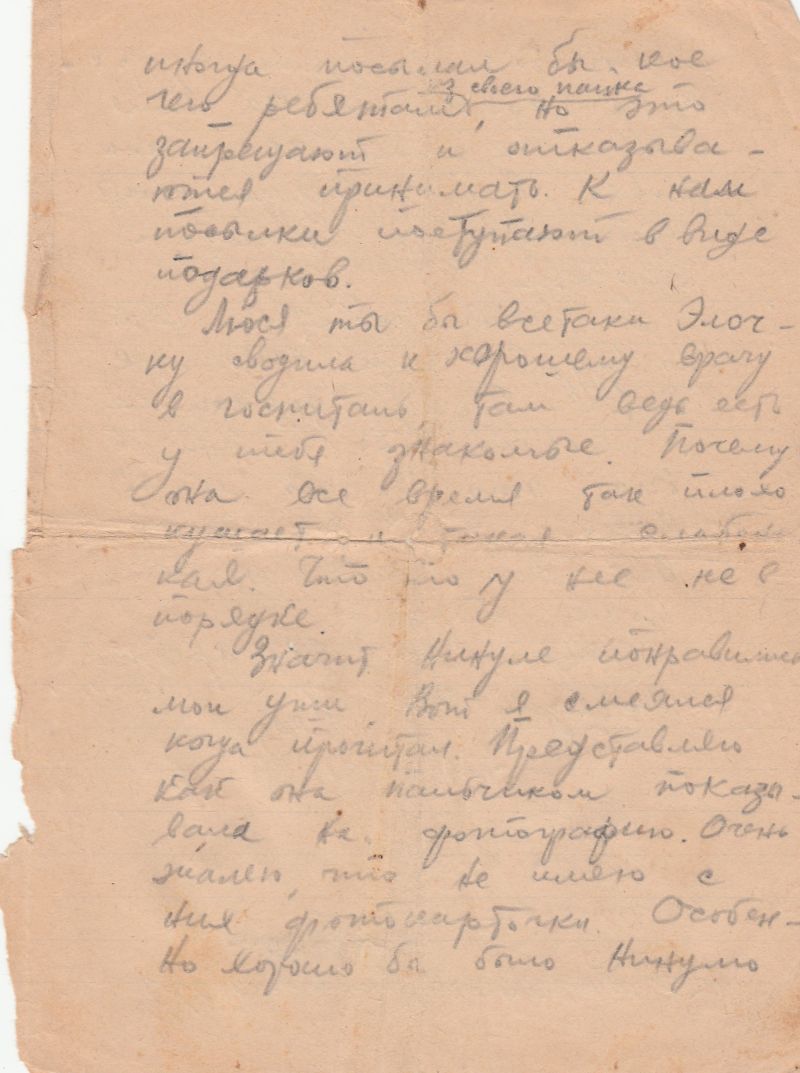 иногда посылал бы кое
из своего пайка
чего ребятам, но это
запрещают и отказыва-
ются принимать. К нам
посылки поступают в виде
подарков.
Люся ты бы всетаки Элоч-
ку сводила к хорошему врачу
в госпиталь, там ведь есть
у тебя знакомые. Почему
она все время так плохо
кушает, она такая слабень
кая. Что то у нее не в
порядке.
Значит Нинуле понравились
мои уши. Вот я смеялся
когда прочитал. Представляю
как она пальчиком показы-
вала на фотографию. Очень
жалею, что не имею с
ния фотокарточки. Особен-
но хорошо бы было Нинулю